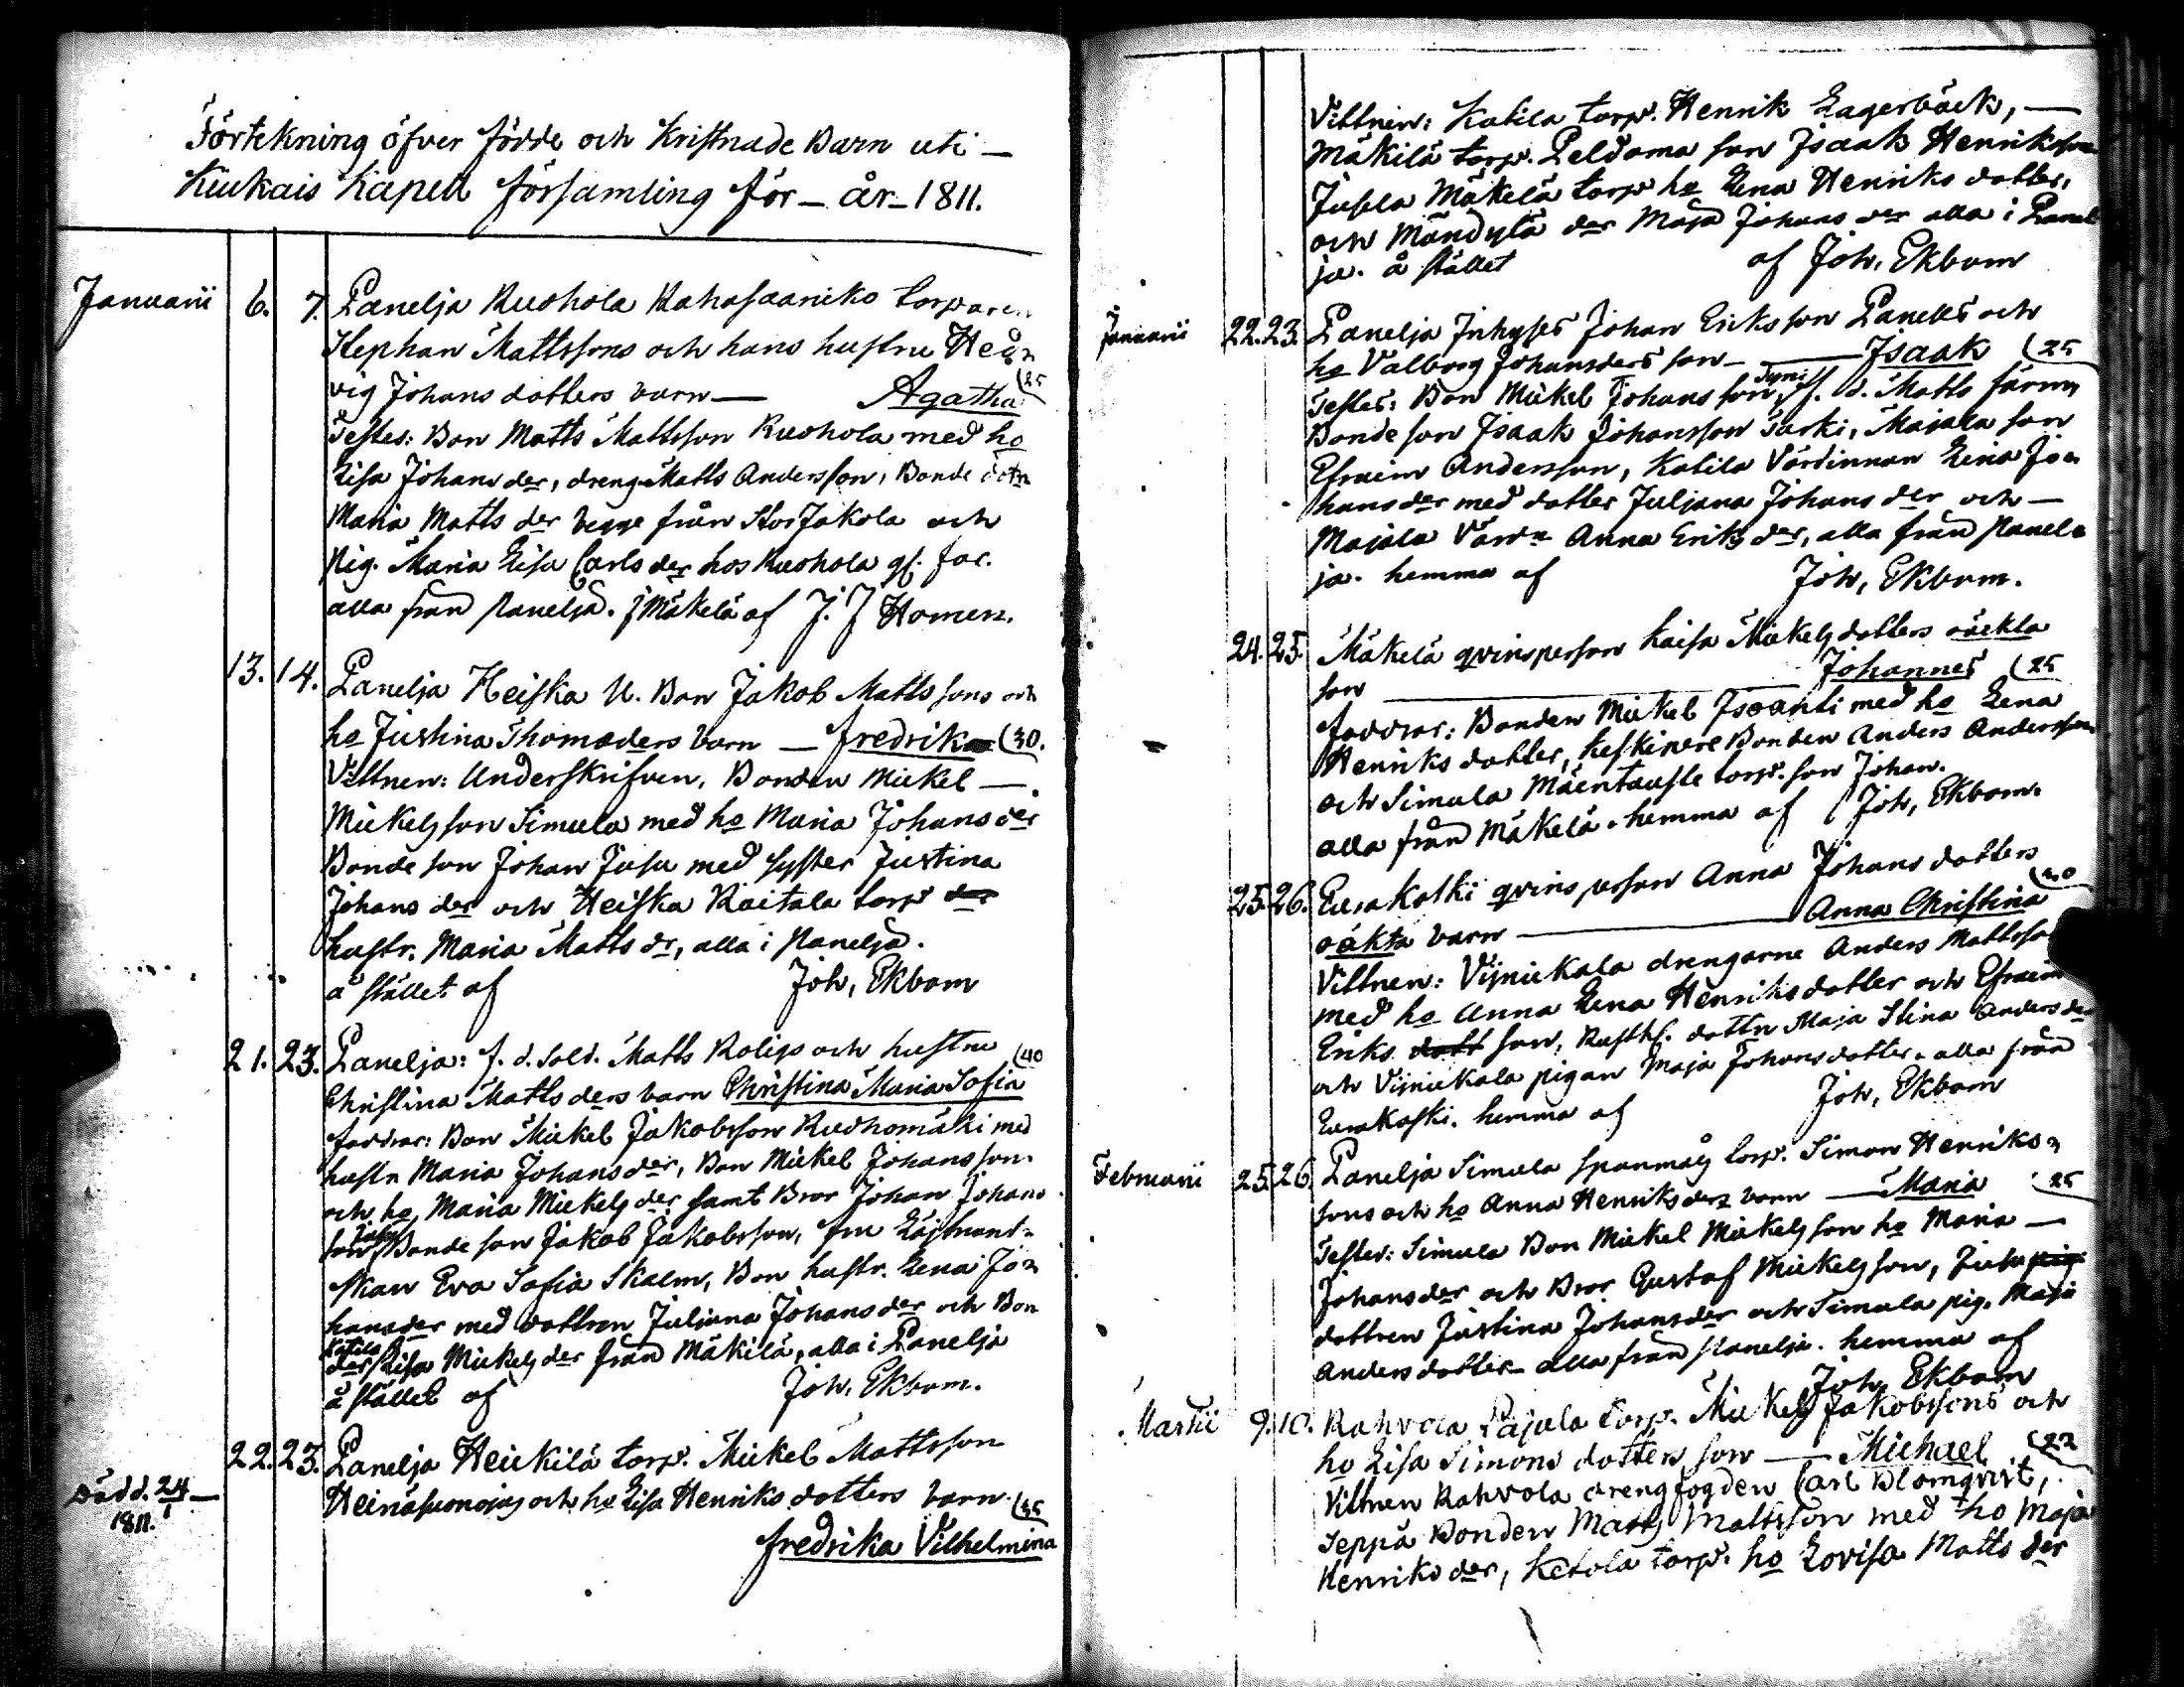 Förtekning öfver födde och Kristnade Barn uti –
Kiukais Kapell församling för – år – 1811.
Januarii 6. 7. Panelja Ruohola Kahasaariko torparen
Stephan Mattssons och hans hustru Hed=
vig Johans dotters barn — Agatha (25
Testes: Bon Matts Mattsson Ruohola med ho
Lisa Johans der, dreng Matts Andersson, Bonde dotn
Maria Matts der begge från Stor Jakola och
Pig. Maria Lisa Carls der hos Ruohola
alla från Panelja. i Mäkelä af J. J Homen.
13. 14. Panelja Heiska U. Bon Jakob Matts sons och
ho Justina Thomæders barn — Fredrika (30.
Vittnen: Underskrifven, Bonden Mickel —
Mickels son Simula med ho Maria Johans der
Bonde son Johan Jusu med syster Justina
Johans der och Heiska Raitala torp der
hustr. Maria Matts dr, alla i Panelja.
å stället af Joh, Ekbom
21. 23. Panelja: f. d. Sold. Matts Roligs och hustru (40
Christina Matts ders barn Christina Maria Sofia
faddrar: Bon Mickel Jakobsson Ruohomäki med
hustr Maria Johans der, Bon Mickel Johans son
och ho Maria Mickels der samt Bror Johan Johans
son Bonde son Jakob Jakobsson, fru Löjtnant=
skan Eva Sofia Skalm, Bon hustr. Lena Jo=
hansder med dottren Juliana Johans der och Bon
Katila
der Lisa Mickels der från Mäkilä, alla i Panelja
å stället af Joh. Ekbom.
22. 23. Panelja Heikilä torp. Mickel Mattsson
Död d. 24 — Heinäsuonoja och ho Lisa Henriks dotters barn (35
1811. Fredrika Vilhelmina
Vittnen: Katila torp. Henrik Lagerbäck, —
Mäkilä torp. Peldoma son Isaak Henriksson
Jusela Mäkelä torp ho Lena Henriks dotter,
och Mändylä der Maja Johans der alla i Panel
ja. å stället af Joh. Ekbom
Januarii 22. 23. Panelja Inhyses Johan Eriks son Panelks och
ho Valborg Johansders son — Isaak (25
Testes: Bon Mickel Johans son, f. d. Matts Färm,
Bonde son Isaak Johansson Sarki, Majala son
Efraim Andersson, Katila Värdinnan Lina Jo=
hans der med dotter Juljana Johans der och —
Majala Värdn Anna Eriks der, alla från Panel=
ja. hemma af Joh, Ekbom.
24. 25. Mäkelä qvinsperson Kaisa Mickels dotters oäckta
son — Johannes (25
faddrar: Bonden Mickel Isoanti med ho Lena
Henriks dotter, Keskinere Bonden Anders Andersson
och Simula Mäentauste torp. son Johan.
alla från Mäkelä. hemma af Joh, Ekbom.
25. 26. Eurakoski qvins person Anna Johans dotters
oäkta barn — Anna Christina (40
Vittnen: Vijniekala drengarne Anders Mattsso
med ho Anna Lena Henriks dotter och Efraim
Eriks dott son, Rusth. dottn Maja Stina Anders der
och Vijniekala pigan Maja Johans dotter. alla från
Eurakoski. hemma af Joh, Ekbom
Februarii 25. 26. Panelja Simula torp. Simon Henriks=
sons och ho Anna Henriks ders barn — Maria (25
Testes: Simula Bon Mickel Mickels son ho Maria —
Johans der och Bror Gustaf Mickels son, Jusu pig
dottren Justina Johansder och Simula pig. Maja
Anders dotter – alla från Panelja. hemma af
Joh, Ekbom
Martii 9. 10. Rahvola Pajula torp. Mickel Jakobssons och
ho Lisa Simons dotters son — Michael (22
Vittnen Rahvola drengfogden Carl Blomqvist,
Seppä Bonden Matts Mattsson med ho Maja
Henriks der, Ketola torp. ho Lovisa Matts der